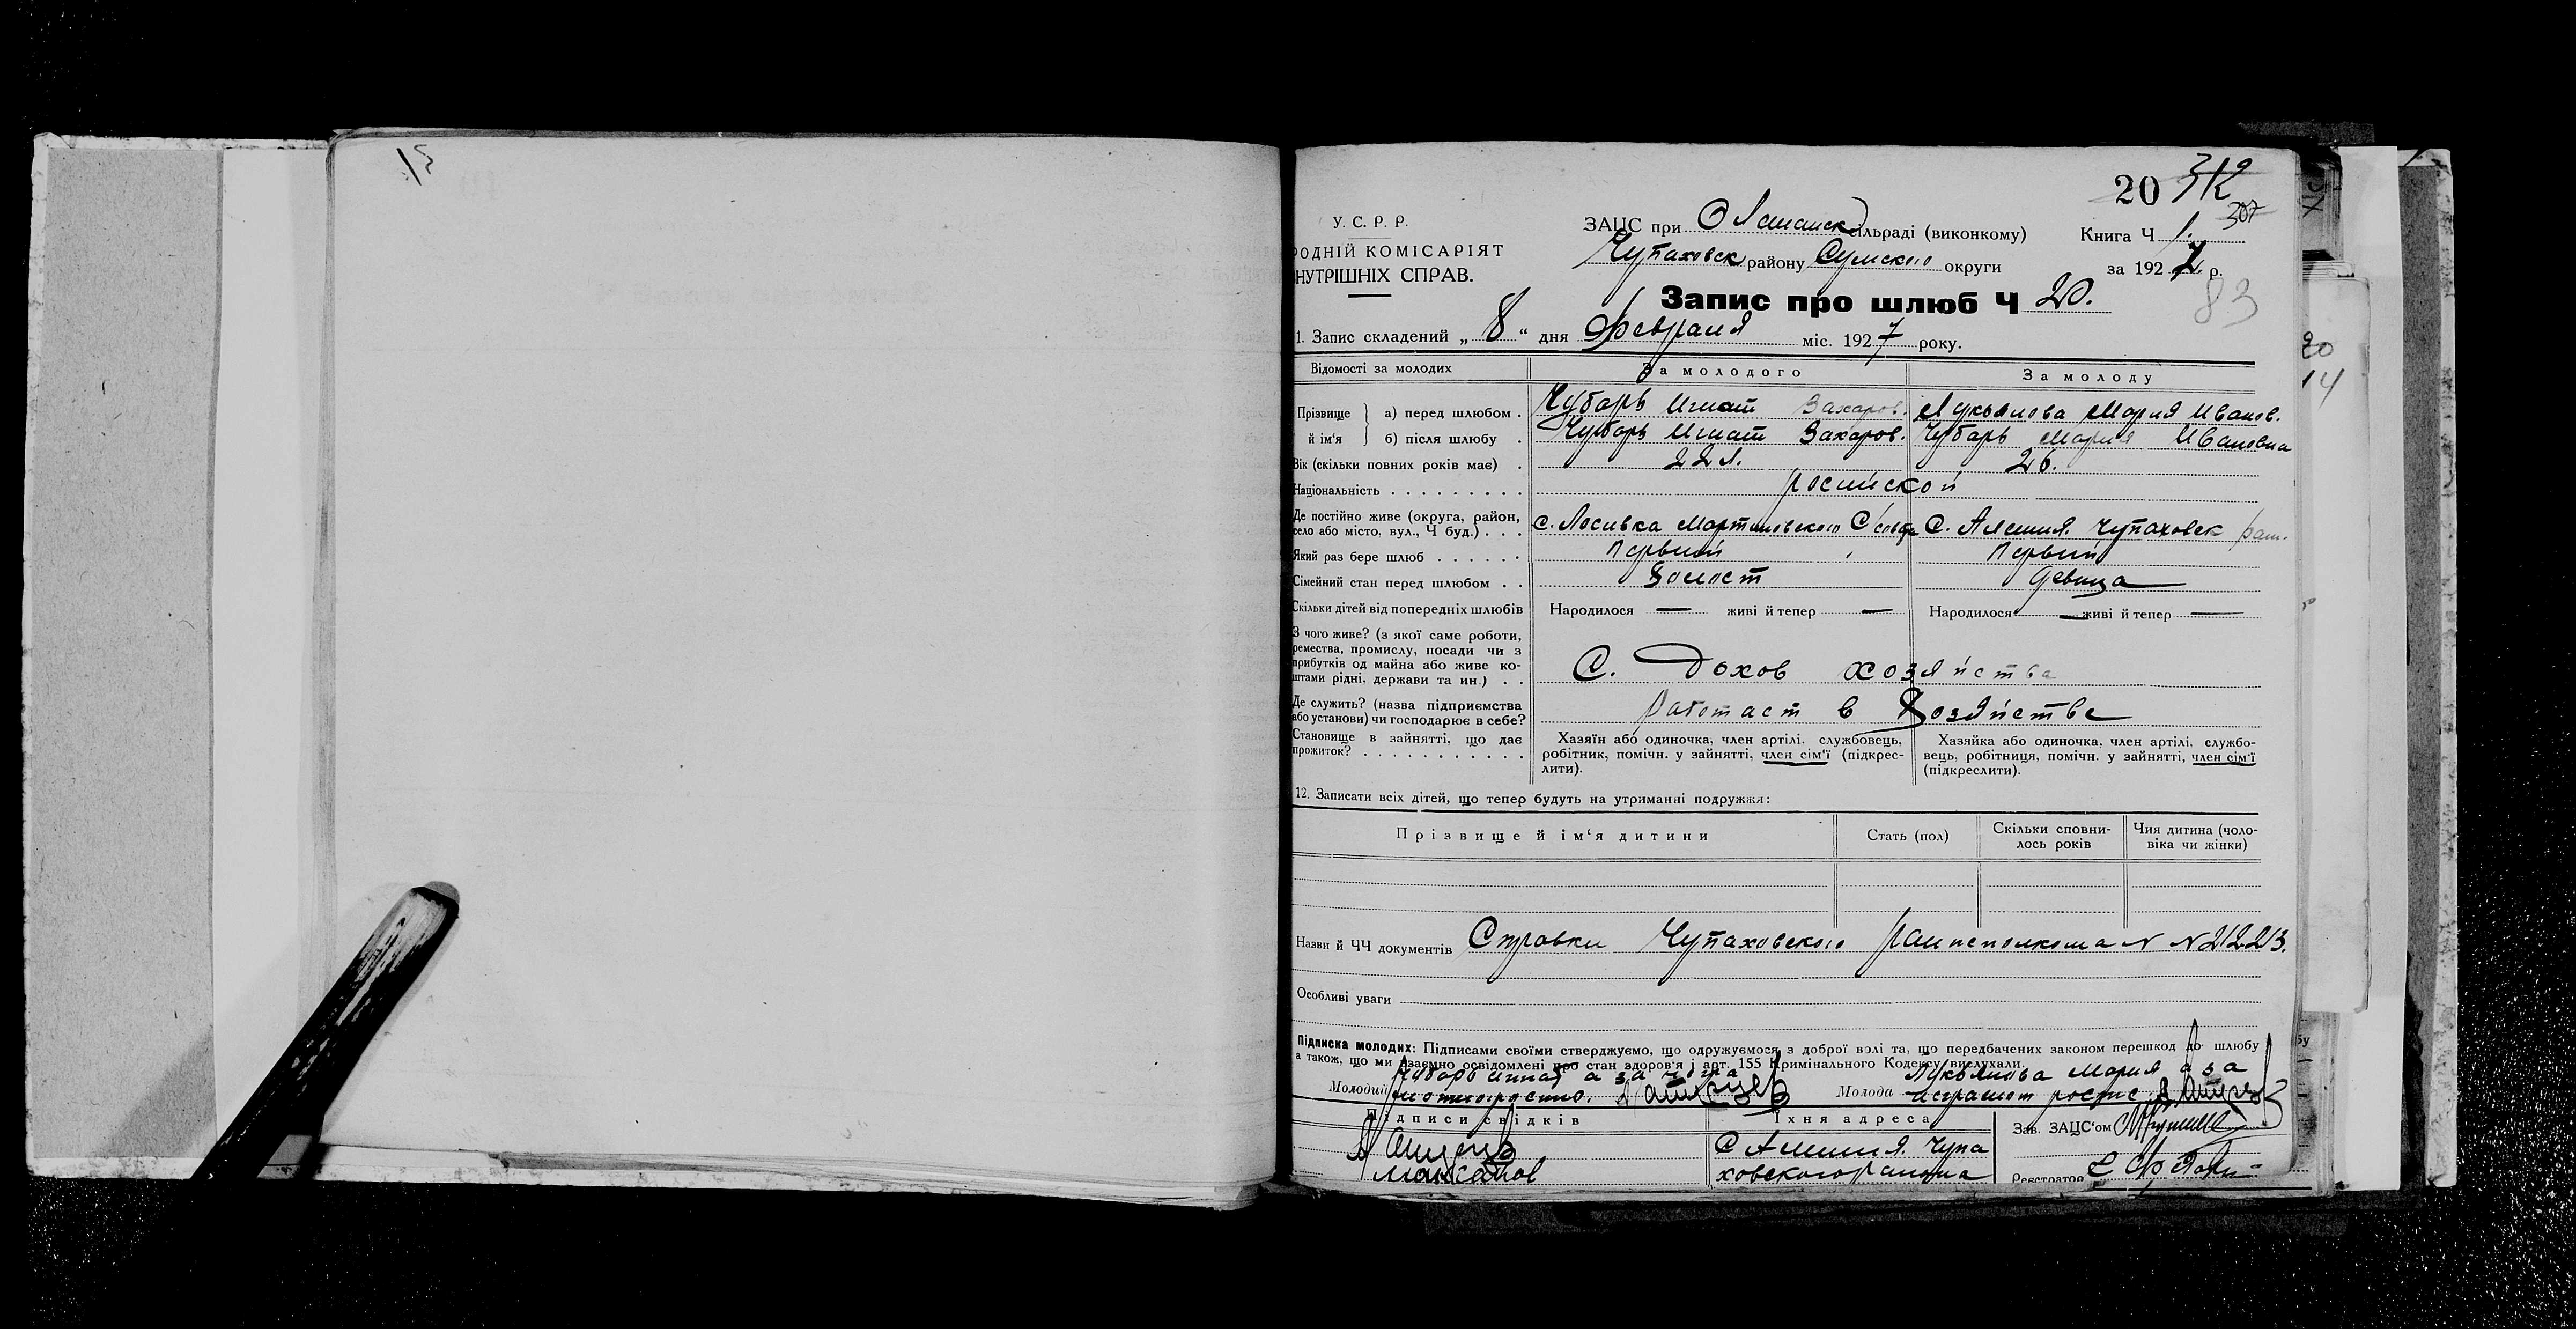 20 312
307
У. С. Р. Р.
РОДНІЙ КОМІСАРІЯТ
НУТРІШНІХ СПРАВ.
ЗАЦС при сільраді (виконкому)
Чупаховск району Сумского округи
Книга Ч 1.
за 1927 р.
83
Запис про шлюб Ч 20.
1. Запис складений „ 8 “ дня Февраля міс. 1927 року.
Відомості за молодих За молодого За молоду
Прізвище й ім‘я
а) перед шлюбом . Чубарь Игнат Захаров. Лукьянова Мария Иванов.
б) після шлюбу . Чубарь Игнат Захаров. Чубарь Мария Ивановна
Вік (скільки повних років має) . 22 л. 26.
Національність . . . . . . . . . росийской
Де постійно живе (округа, район,
село або місто, вул., Ч буд.) . . . с. Лосивка Мартиновского С. Алешня. Чупаховск
Який раз бере шлюб . . . . . . Первый Первый
Сімейний стан перед шлюбом . . Холост Девица
Скільки дітей від попередніх шлюбів Народилося — живі й тепер — Народилося — живі й тепер —
З чого живе? (з якої саме роботи,
ремества, промислу, посади чи з
прибутків од майна або живе ко-
штами рідні, держави та ин.) . . С. Дохов хозяйства
Де служить? (назва підприємства
або установи) чи господарює в себе? Работает в Хозяйстве
Становище в зайнятті, що дає
прожиток? . . . . . . . . . . .
Хазяїн або одиночка, член артілі, службовець,
робітник, помічн. у зайнятті, член сім‘ї (підкрес-
лити).
Хазяйка або одиночка, член артілі, службо-
вець, робітниця, помічн. у зайнятті, член сім‘ї
(підкреслити).
12. Записати всіх дітей, що тепер будуть на утриманні подружжя:
Прізвище й ім‘я дитини Стать (пол) Скільки сповни-
лось років Чия дитина (чоло-
віка чи жінки)
Назви й ЧЧ документів Справки Чупаховского райисполкома N N 212 213.
Особливі уваги
Підписка молодих: Підписами своїми стверджуємо, що одружуємося з доброї волі та, що передбачених законом перешкод до шлюбу
а також, що ми взаємно освідомлені про стан здоров'я і арт. 155 Кримінального Кодексу вислухали.
Молодий Чубарь Игнат а за
Молода Лукьянова Мария а за
Підписи свідків Їхня адреса
Зав. ЗАЦС‘ом
С Алешня. Чупа
ховского района
Реєстратор